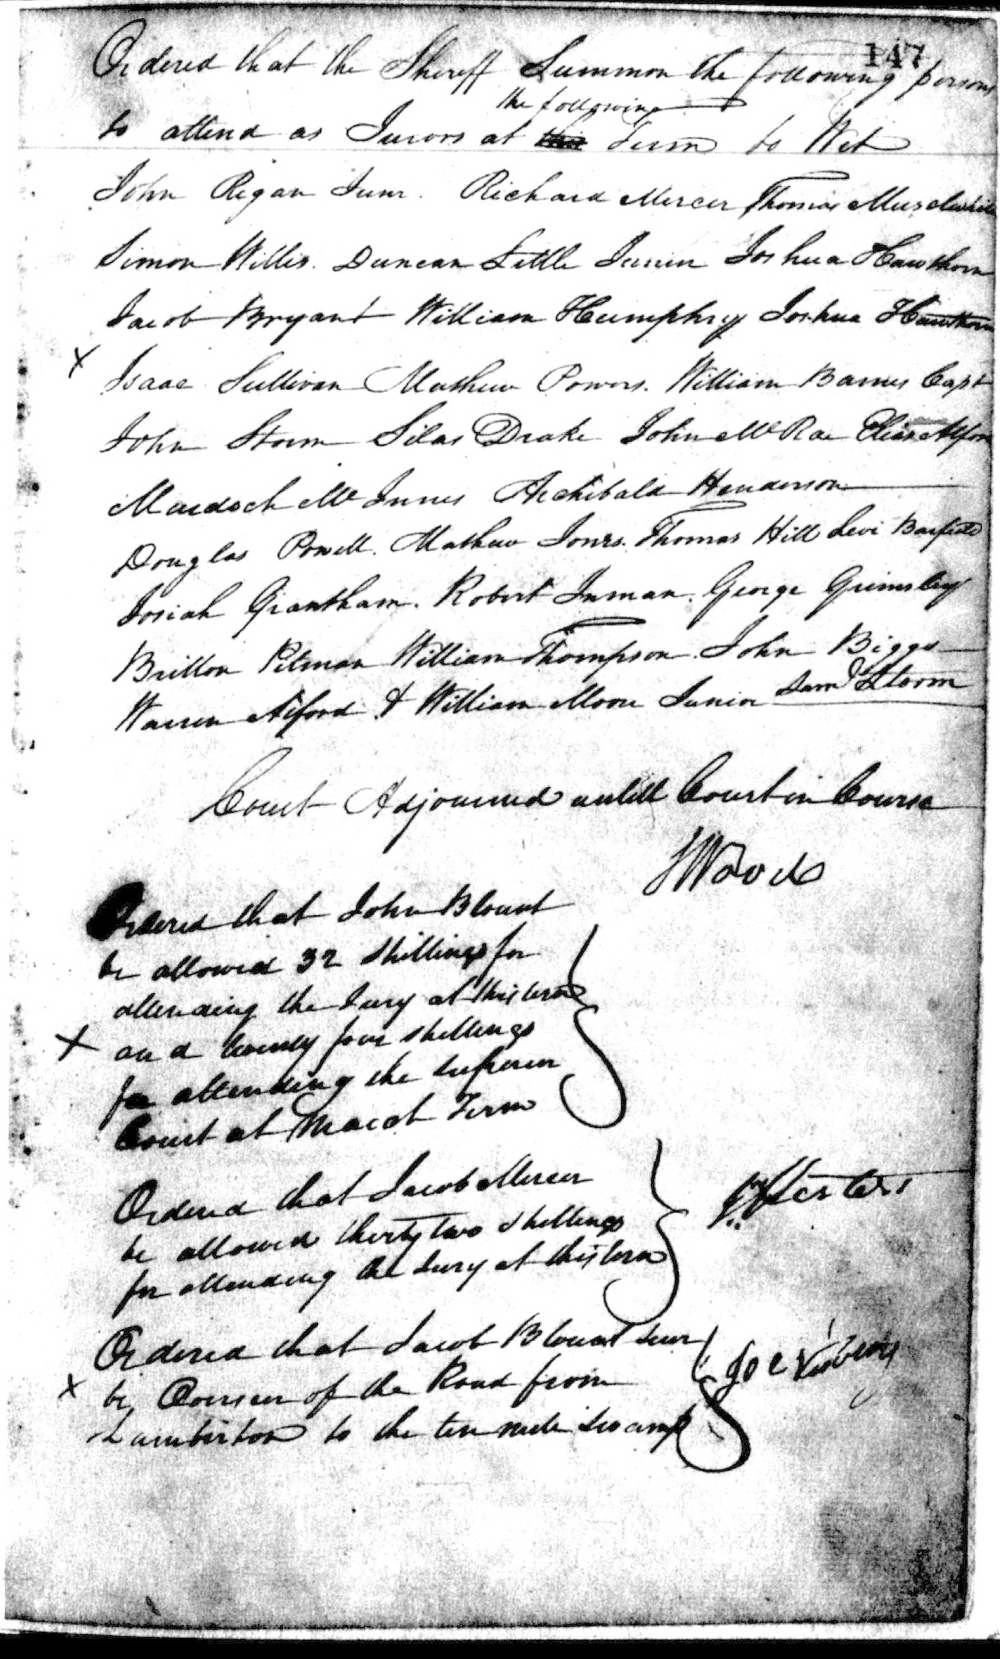 147
Ordered that the Sheriff Summon the following persons
the following
to attend as Jurors at this Term to Wit
John Regan Junr. Richard Mercer Thomas Musslewhite
Simon Willis. Duncan Little Junior Joshua Hawthorn
Jacob Bryant William Humphry Joshua Hawthorn
x Isaac Sullivan Mathew Powers. William Barnes Capt
John Storm Silas Drake John McRae Elias Alford
Murdoch McInnis Archibald Henderson
Douglas Powell. Mathew Jones. Thomas Hill Levi Barfield
Josiah Grantham. Robert Inman. George Grimsley
Britton Pitman William Thompson. John Biggs
Warren Alford & William Moore Junior Saml Storm
Court Adjourned untill Court in Course
JWood
Ordered that John Blount
be allowed 32 shillings for
attending the Jury at this term
x and twenty four shillings
for attending the superior
Court at March Term
Ordered that Jacob Mercer
be allowed thirty two shillings
for attending the Jury at this term
Ordered that Jacob Blount Junr
x be Overseer of the Road from
Lumberton to the ten mile swamp